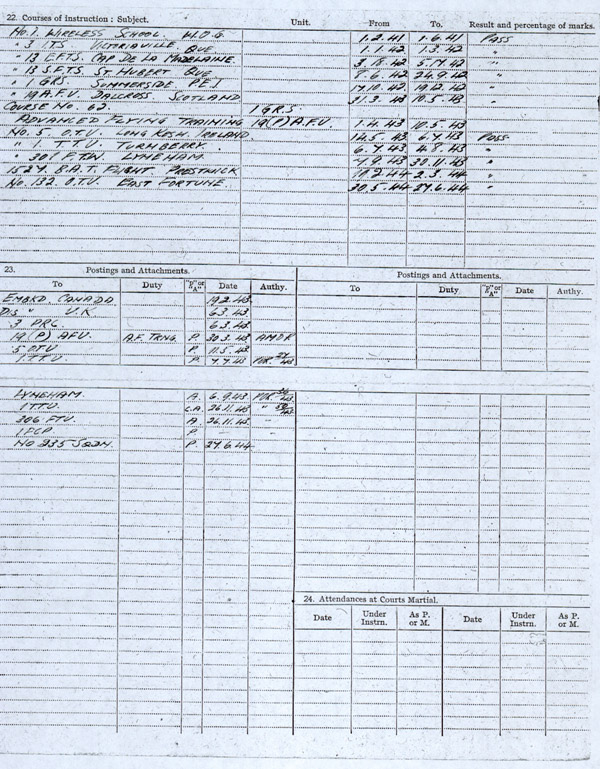 22. Courses of instruction : Subject. Unit. From To. Result and percentage of marks.
No. 1. WIRELESS SCHOOL. W.O.G 1.2.41 1.6.41 PASS
" 3 ITS VICTORIAVILLE. QUE 1.1.42 1.3.42 "
" 13 E.F.T.S. CAP DE LA MADELAINE. 42 "
" 13 S.F.T.S. ST HUBERT QUE 8.6.42 24.9.42 "
" 1 GRS SUMMERSIDE PEI 17.10.42 19.12.42 "
" 19 A.F.U. DALCROSS SCOTLAND 31.3.43 10.5.43 "
COURSE No. 62. 1 G.R.S.
ADVANCED FLYING TRAINING 19(P) A.F.U. 1.4.43 10.5.43
No. 5 O.T.U. LONG KESH. IRELAND 14.5.43 6.7.43 PASS
" 1. T.T.U. TURNBERRY. 6.7.43 4.8.43 "
" 301 F.T.U. LYNEHAM. 7.9.43 30.11.43 "
1527. B.A.T. FLIGHT PRESTWICK 19.2.44 2.3.44 "
No. 132. O.T.U. EAST FORTUNE. 30.5.44 27.6.44 "
23. Postings and Attachments.
To Duty "P" or "A" Date Authy.
EMBKD CANADA 19.2.43
DIS " U.K. 6.3.43
3 PRC. 6.3.43
19 (P) AFU. A.F. TRNG. P. 30.3.43 AMDR
5 OTU P. 11.5.43
1. TTU. P. 7.7.43 POR. 27/43
LYNEHAM. A. 6.9.43 POR.
1 TTU. C.A. 26.11.43 "
306. FTU. A. 26.11.43 "
1 FCP. P. "
No 235 SQDN. P. 27.6.44
Postings and Attachments.
To Duty "P" or "A" Date Authy.
24. Attendances at Courts Martial.
Date Under Instrn. As P. or M. Date Under Instrn. As P. or M.